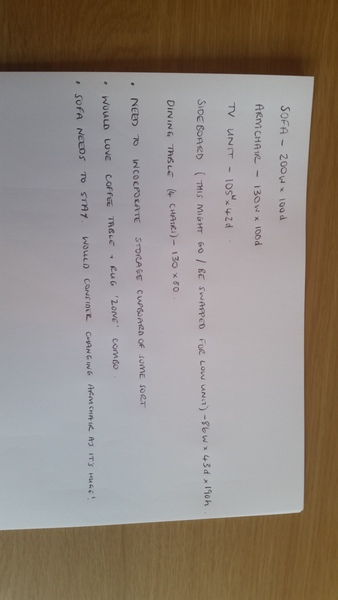 SOFA - 200W x 100d
ARMCHAIR - 130W x 100d
TV UNIT - 105W x 42d.
SIDEBOARD (THIS MIGHT GO / BE SWAPPED FOR LOW UNIT) - 86W x 43d x 190h.
DINING TABLE (4 CHAIR) - 130 x 80.
• NEED TO INCORPORATE STORAGE CUPBOARD OF SOME SORT
• WOULD LOVE COFFEE TABLE + RUG 'ZONE' COMBO.
• SOFA NEEDS TO STAY. WOULD CONSIDER CHANGING ARMCHAIR AS IT'S HUGE!